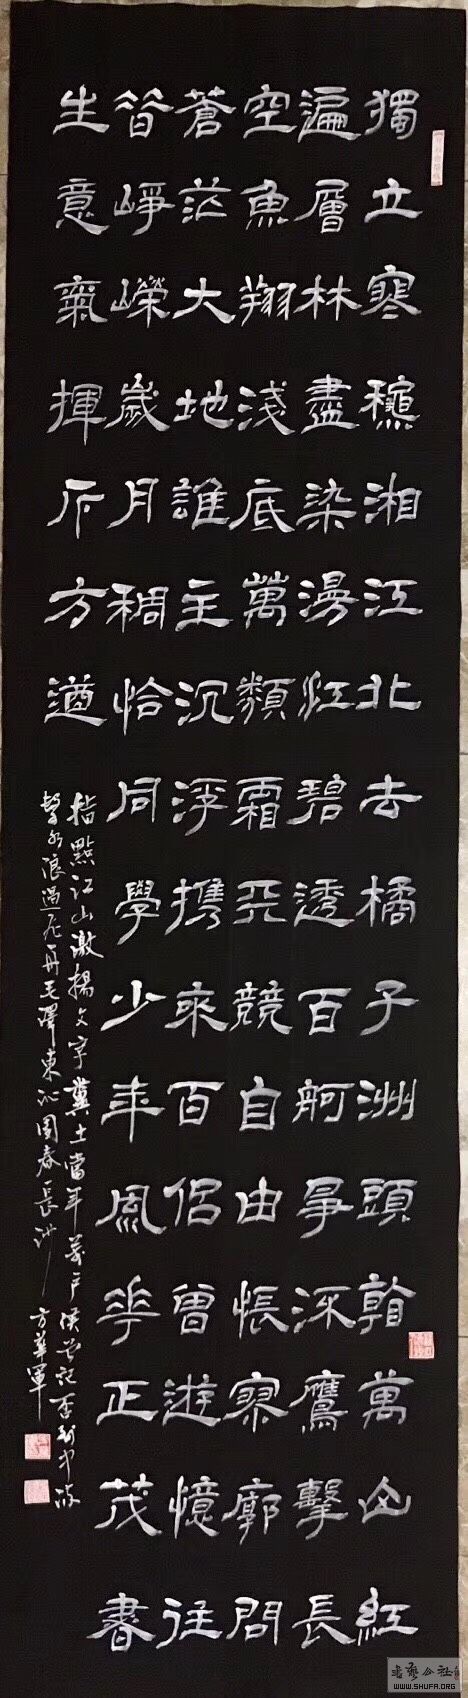 獨立寒穐湘江北去橘子洲頭看萬山紅
遍層林盡染漫江碧透百舸爭流鷹擊長
空魚翔淺底萬類霜天競自由悵寥廓問
蒼茫大地誰主沉浮携來百侶曾遊憶往
昔崢嶸歲月稠恰同學少年風華正茂書
生意氣揮斥方遒
指點江山激揚文字糞土當年萬戶侯曾記否到中流
擊水浪遏飛舟毛澤東沁園春長沙 方華軍
書藝公社
WWW.SHUFA.ORG